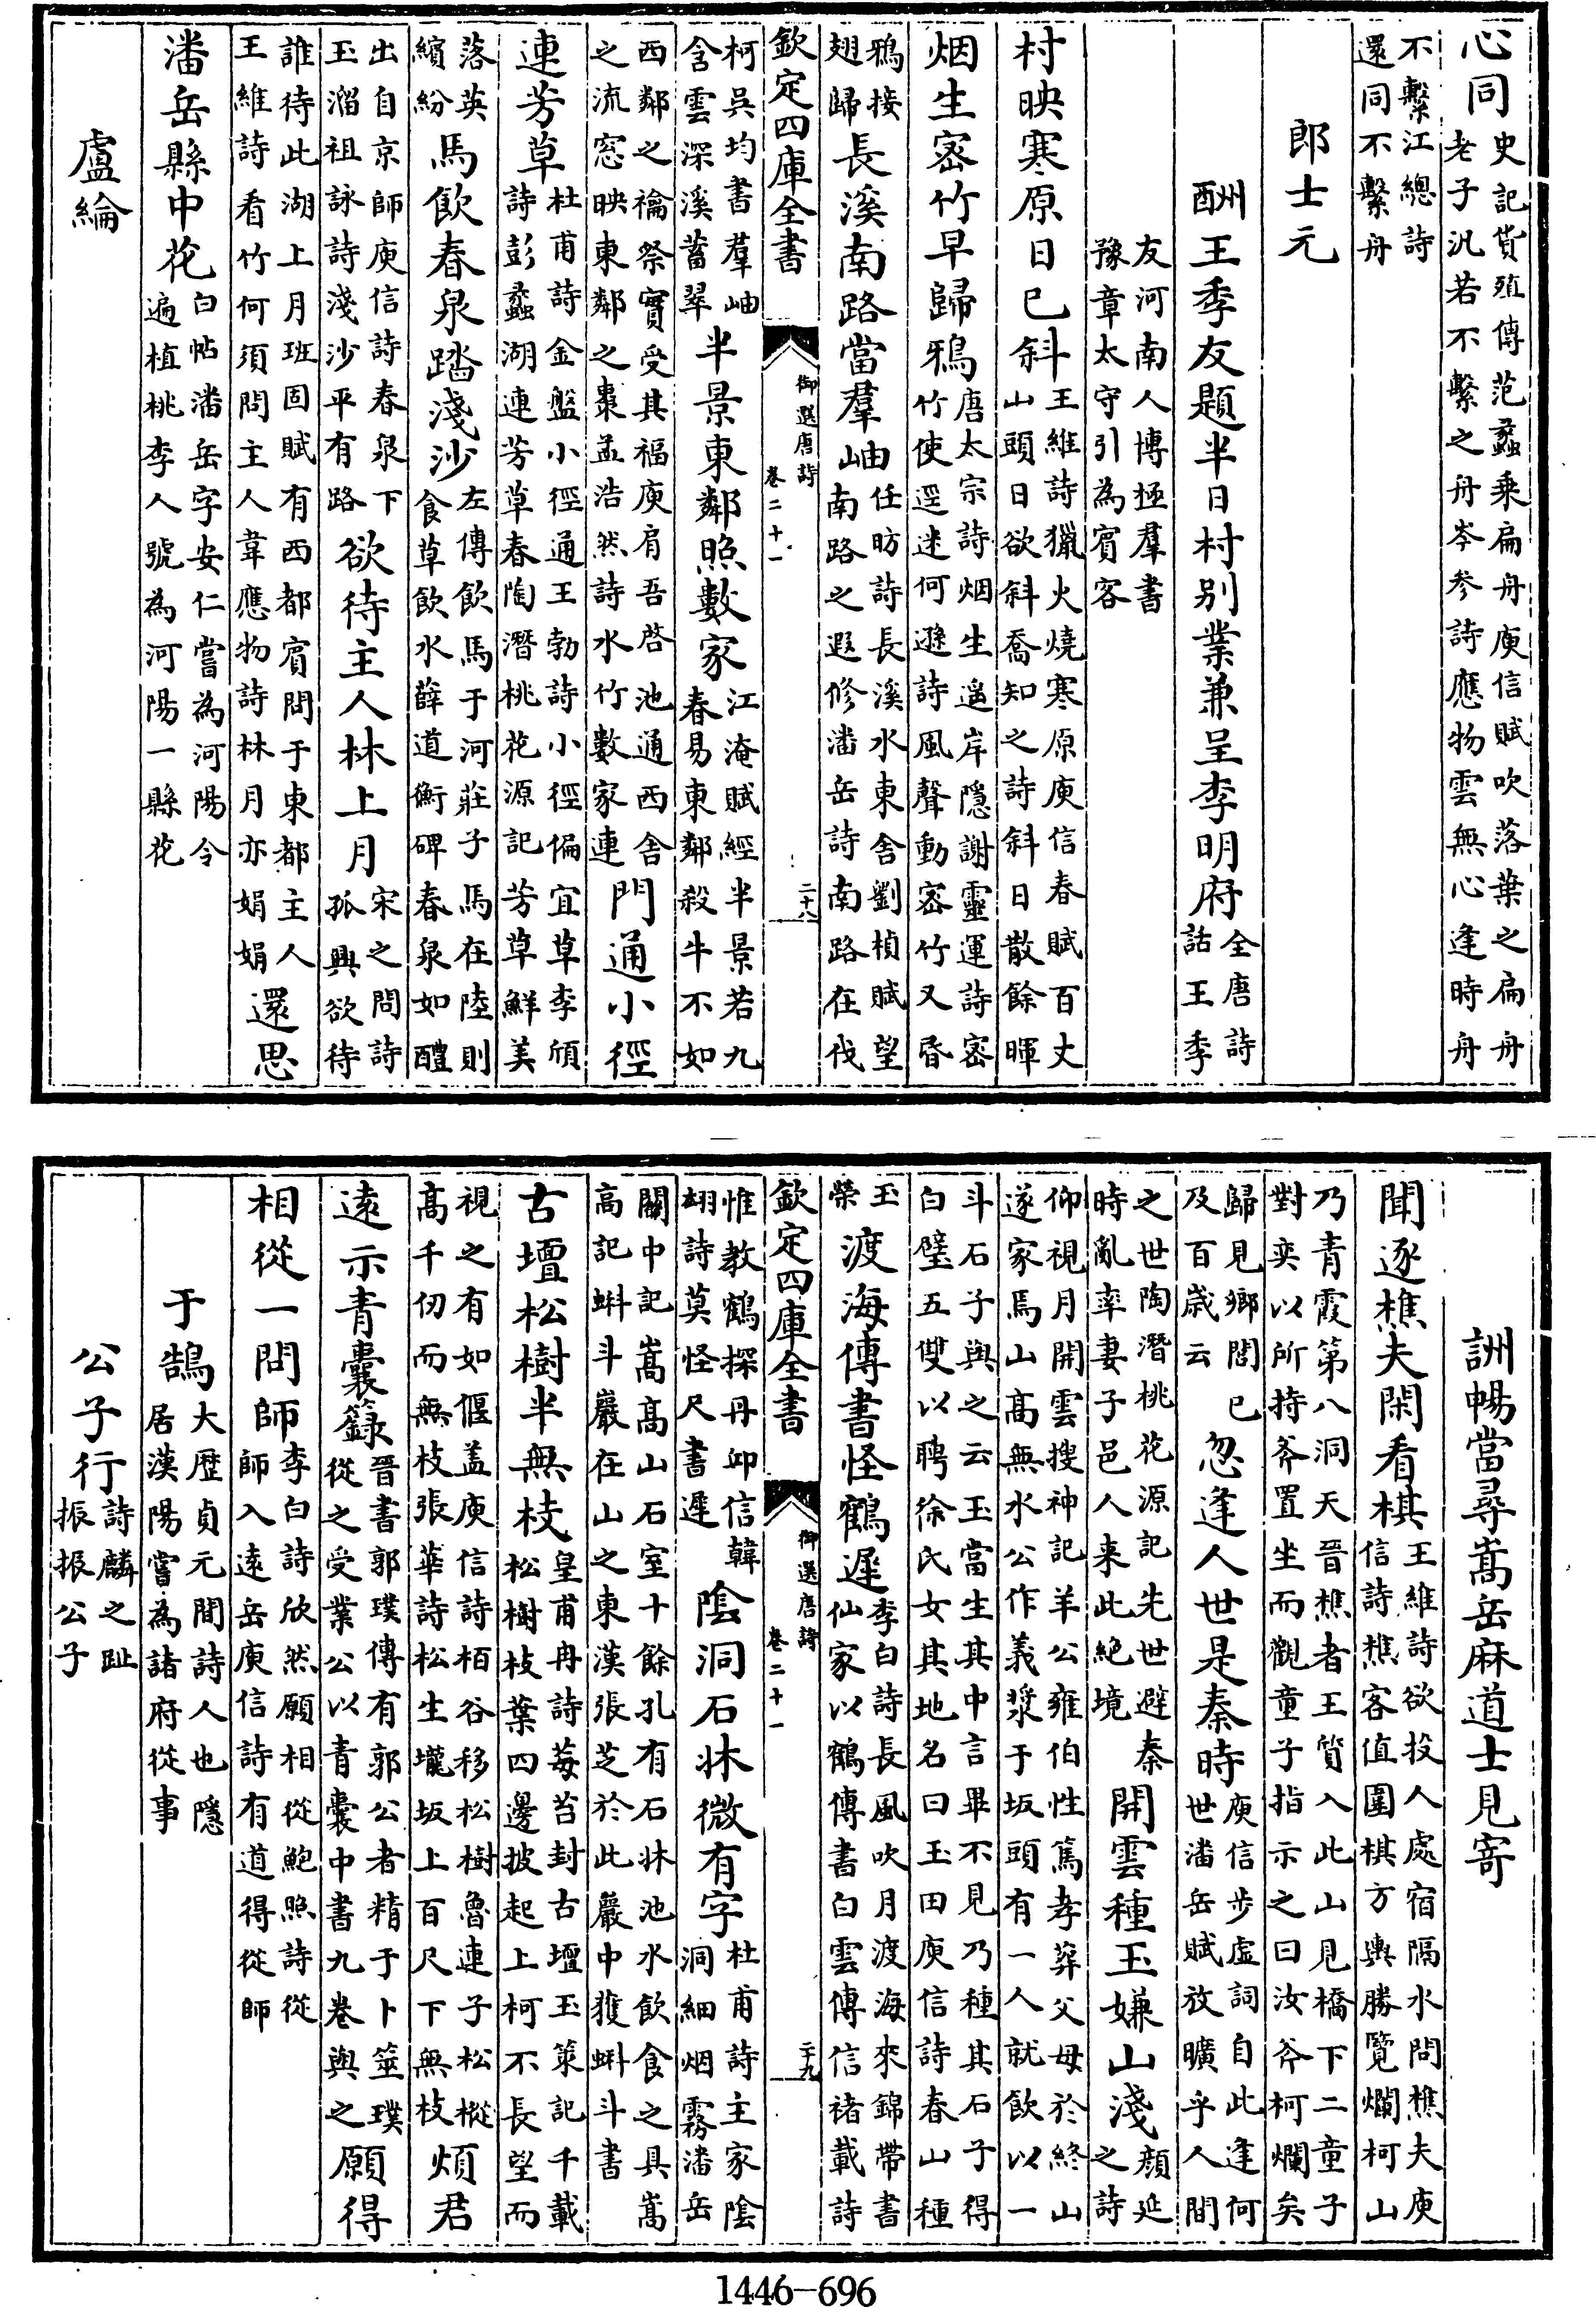 心同史記貨殖傳范蠡乗扁舟庾信賦吹落葉之扁舟老子汎若不繫之舟岑参詩應物雲無心逢時舟
不繫江總詩還同不繫舟
郎士元
酬王季友題半日村别業兼呈李明府全唐詩話王季
友河南人博極羣書豫章太守引為賔客
村映寒原日已斜王維詩獵火燒寒原庾信春賦百丈山頭日欲斜喬知之詩斜日散餘暉
烟生宻竹早歸鴉唐太宗詩烟生遥岸隠謝靈運詩宻竹使逕迷何遜詩風聲動宻竹又昏
鴉接翅歸長溪南路當羣岫任昉詩長溪水東舎劉楨賦望南路之遐修潘岳詩南路在伐
欽定四庫全書 御選唐詩 卷二十一 二十八
柯吳均書羣岫含雲深溪蓄翠半景東鄰照數家江淹賦經半景若九春易東鄰殺牛不如
西鄰之禴祭實受其福庾肩吾啓池通西舎之流窓映東鄰之棗孟浩然詩水竹數家連門通小徑
連芳草杜甫詩金盤小徑通王勃詩小徑偏宜草李頎詩彭蠡湖連芳草春陶潛桃花源記芳草鮮美
落英繽紛馬飲春泉踏淺沙左傳飲馬于河莊子馬在陸則食草飲水薛道衡碑春泉如醴
出自京師庾信詩春泉下玉溜祖詠詩淺沙平有路欲待主人林上月宋之問詩孤興欲待
誰待此湖上月班固賦有西都賔問于東都主人王維詩看竹何須問主人韋應物詩林月亦娟娟還思
潘岳縣中花白帖潘岳字安仁嘗為河陽令遍植桃李人號為河陽一縣花
盧綸
詶暢當尋嵩岳麻道士見寄
聞逐樵夫閑看棋王維詩欲投人處宿隔水問樵夫庾信詩樵客值圍棋方輿勝覽爛柯山
乃青霞第八洞天晉樵者王質入此山見橋下二童子對奕以所持斧置坐而觀童子指示之曰汝斧柯爛矣
歸見鄉閭已及百歲云忽逢人世是秦時庾信步虛詞自此逢何世潘岳賦放曠乎人間
之世陶潛桃花源記先世避秦時亂率妻子邑人来此絶境開雲種玉嫌山淺顔延之詩
仰視月開雲搜神記羊公雍伯性篤孝葬父母於終山遂家焉山高無水公作義漿于坂頭有一人就飲以一
斗石子與之云玉當生其中言畢不見乃種其石子得白璧五雙以聘徐氏女其地名曰玉田庾信詩春山種
玉榮渡海傳書怪鶴遲李白詩長風吹月渡海來錦帶書仙家以鶴傳書白雲傳信褚載詩
欽定四庫全書 御選唐詩 卷二十一 二十九
惟教鶴探丹邱信韓翃詩莫怪尺書遲隂洞石牀微有字杜甫詩主家隂洞細烟霧潘岳
關中記嵩高山石室十餘孔有石牀池水飲食之具嵩高記蝌斗巖在山之東漢張芝於此巖中獲蝌斗書
古壇松樹半無枝皇甫冉詩莓苔封古壇玉策記千載松樹枝葉四邊披起上柯不長望而
視之有如偃盖庾信詩栢谷移松樹魯連子松樅高千仞而無枝張華詩松生壠坂上百尺下無枝煩君
逺示青囊籙晉書郭璞傳有郭公者精于卜筮璞從之受業公以青囊中書九卷與之願得
相從一問師李白詩欣然願相從鮑照詩從師入逺岳庾信詩有道得從師
于鵠大歴貞元間詩人也隠居漢陽嘗為諸府從事
公子行詩麟之趾振振公子
1446-696